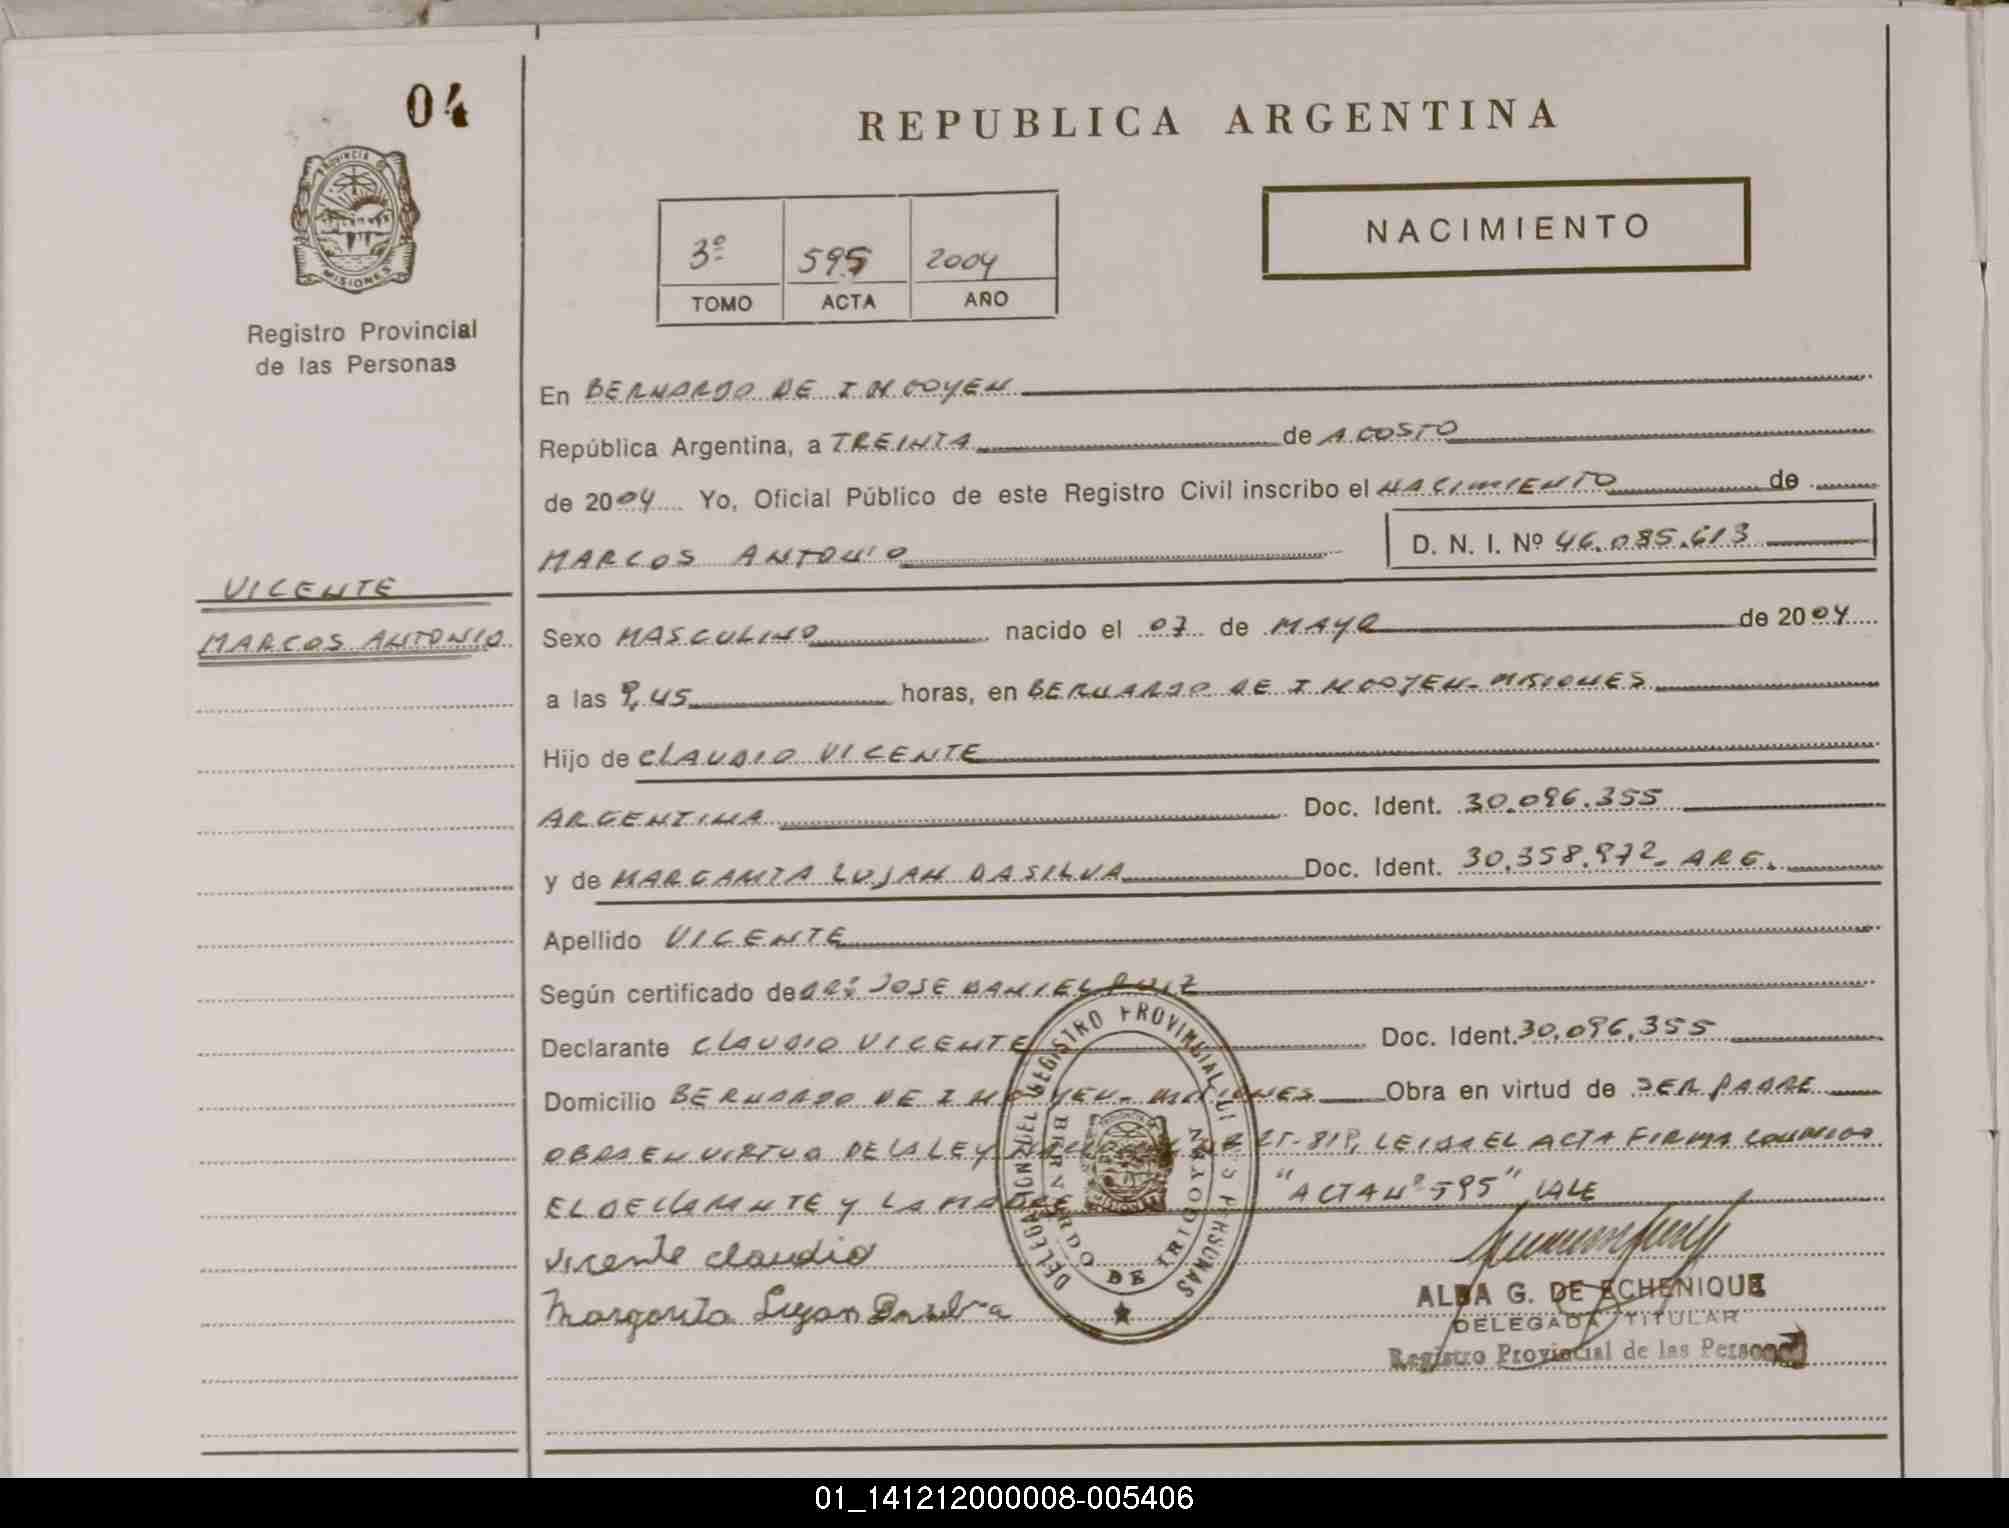 04
PROVINCIA DE
MISIONES
Registro Provincial
de las Personas
REPUBLICA ARGENTINA
3º 595 2004
TOMO ACTA AÑO
NACIMIENTO
En BERNARDO DE IRIGOYEN
República Argentina, a TREINTA de AGOSTO
de 2004 Yo, Oficial Público de este Registro Civil inscribo el NACIMIENTO de
MARCOS ANTONIO D. N. I. Nº 46.085.613
VICENTE
MARCOS ANTONIO
Sexo MASCULINO nacido el 07 de MAYO de 2004
a las 9,45 horas, en BERNARDO DE IRIGOYEN - MISIONES
Hijo de CLAUDIO VICENTE
ARGENTINA Doc. Ident. 30.096.355
y de MARGARITA LUJAN DASILVA Doc. Ident. 30.358.972 - ARG.
Apellido VICENTE
Según certificado de JOSE DANIEL RUIZ
Declarante CLAUDIO VICENTE Doc. Ident. 30.096.355
Domicilio BERNARDO DE IRIGOYEN - MISIONES Obra en virtud de SER PADRE
OBRA EN VIRTUD DE LA LEY LEIDA EL ACTA FIRMA CONMIGO
EL DECLARANTE Y LA MADRE "ACTA Nº 595" VALE
Vicente Claudio
Margarita Lujan Dasilva
DELEGACION DEL REGISTRO PROVINCIAL DE LAS PERSONAS
BERNARDO DE IRIGOYEN
ALBA G. DE ECHENIQUE
DELEGADA TITULAR
Registro Provincial de las Personas
01_141212000008-005406